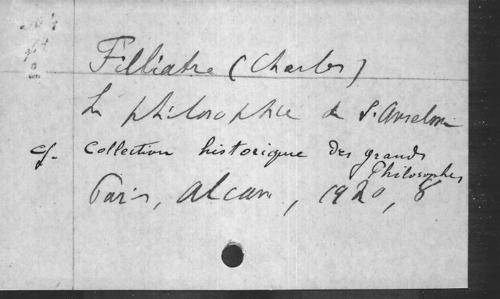 Filliatre (Charles)
La philosophie de St Anselme
cf. Collection historique des grands
Philosophes
Paris, Alcan, 1920, 8